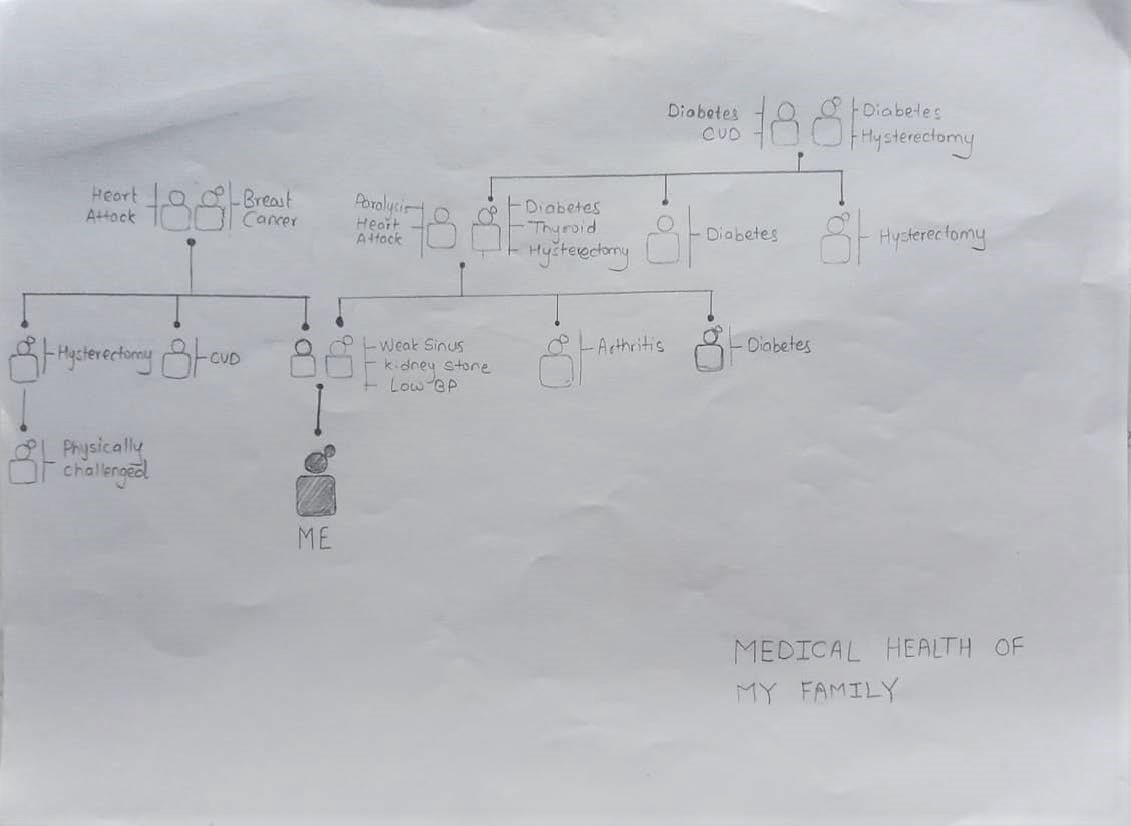 Diabetes
CVD
Diabetes
Hysterectomy
Heart
Attack
Breast
Cancer
Paralysis
Heart
Attack
Diabetes
Thyroid
Hysterectomy
Diabetes
Hysterectomy
Hysterectomy
CVD
Weak Sinus
kidney stone
Low BP
Arthritis
Diabetes
Physically
challenged
ME
MEDICAL HEALTH OF
MY FAMILY